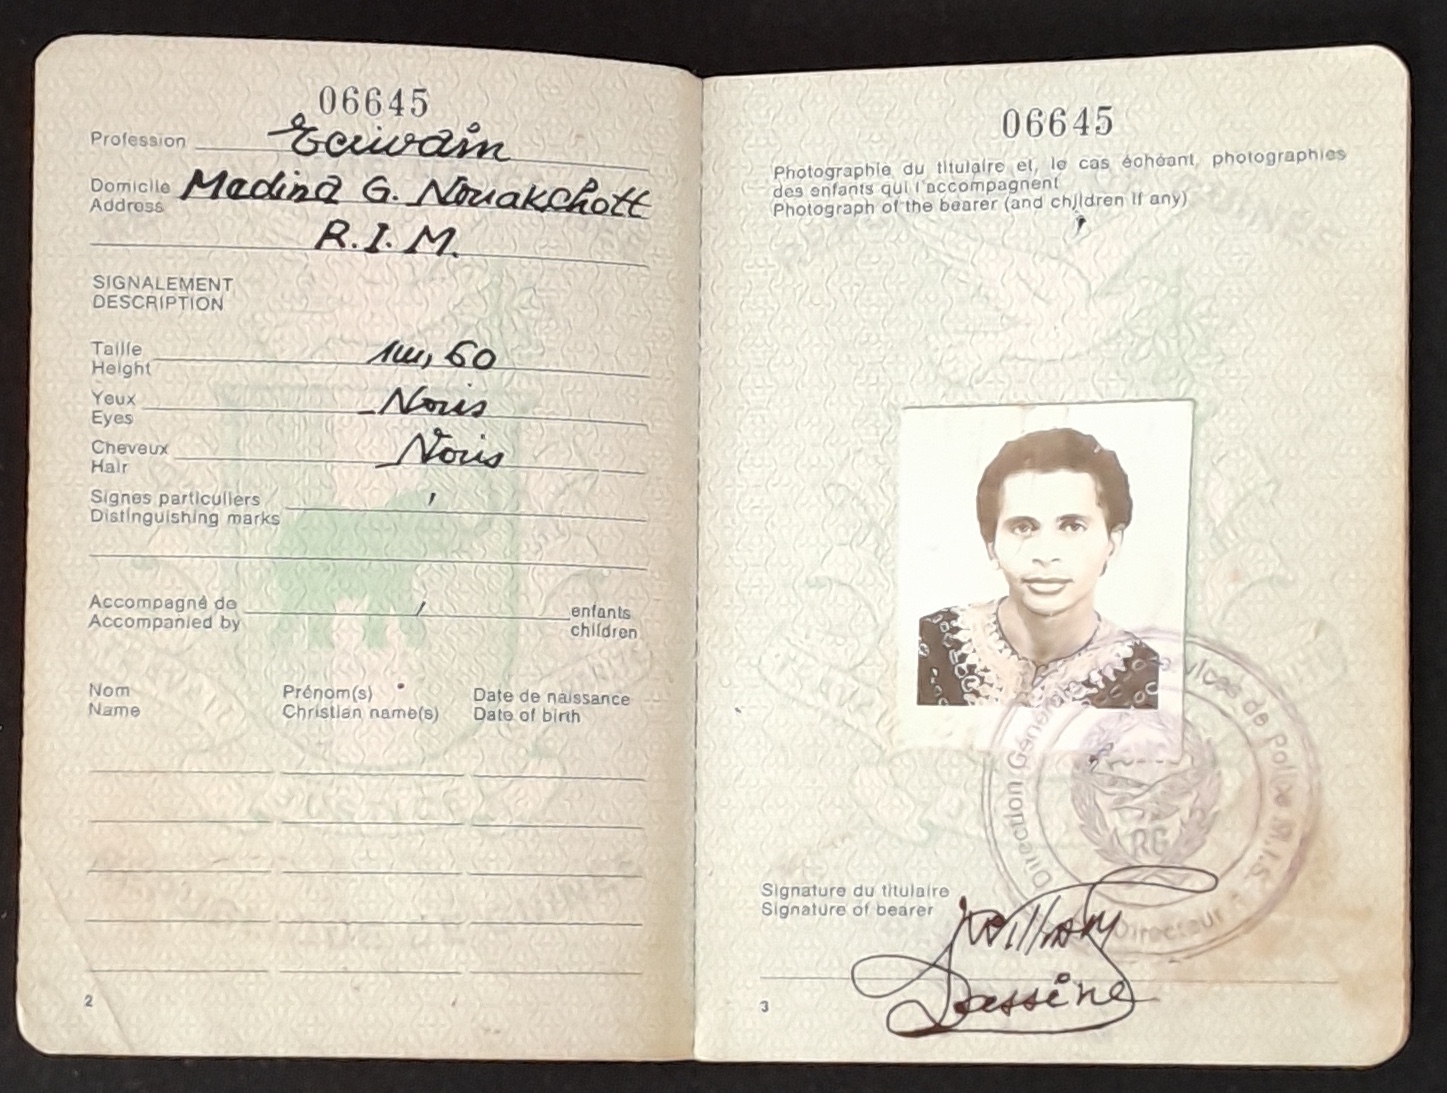 06645
Profession Ecrivain
Domicile Medina G. Nouakchott
Address
R.I.M.
SIGNALEMENT
DESCRIPTION
Taille 1m,60
Height
Yeux Noirs
Eyes
Cheveux Noirs
Hair
Signes particuliers
Distinguishing marks
Accompagné de / enfants
Accompanied by children
Nom Prénom(s) Date de naissance
Name Christian name(s) Date of birth
JUSTICE
2
06645
Photographie du titulaire et, le cas échéant, photographies
des enfants qui l'accompagnent
Photograph of the bearer (and children if any)
Direction Générale Services de Police M.I.S.
Directeur
RG
Signature du titulaire
Signature of bearer
Williany
Sassine
3